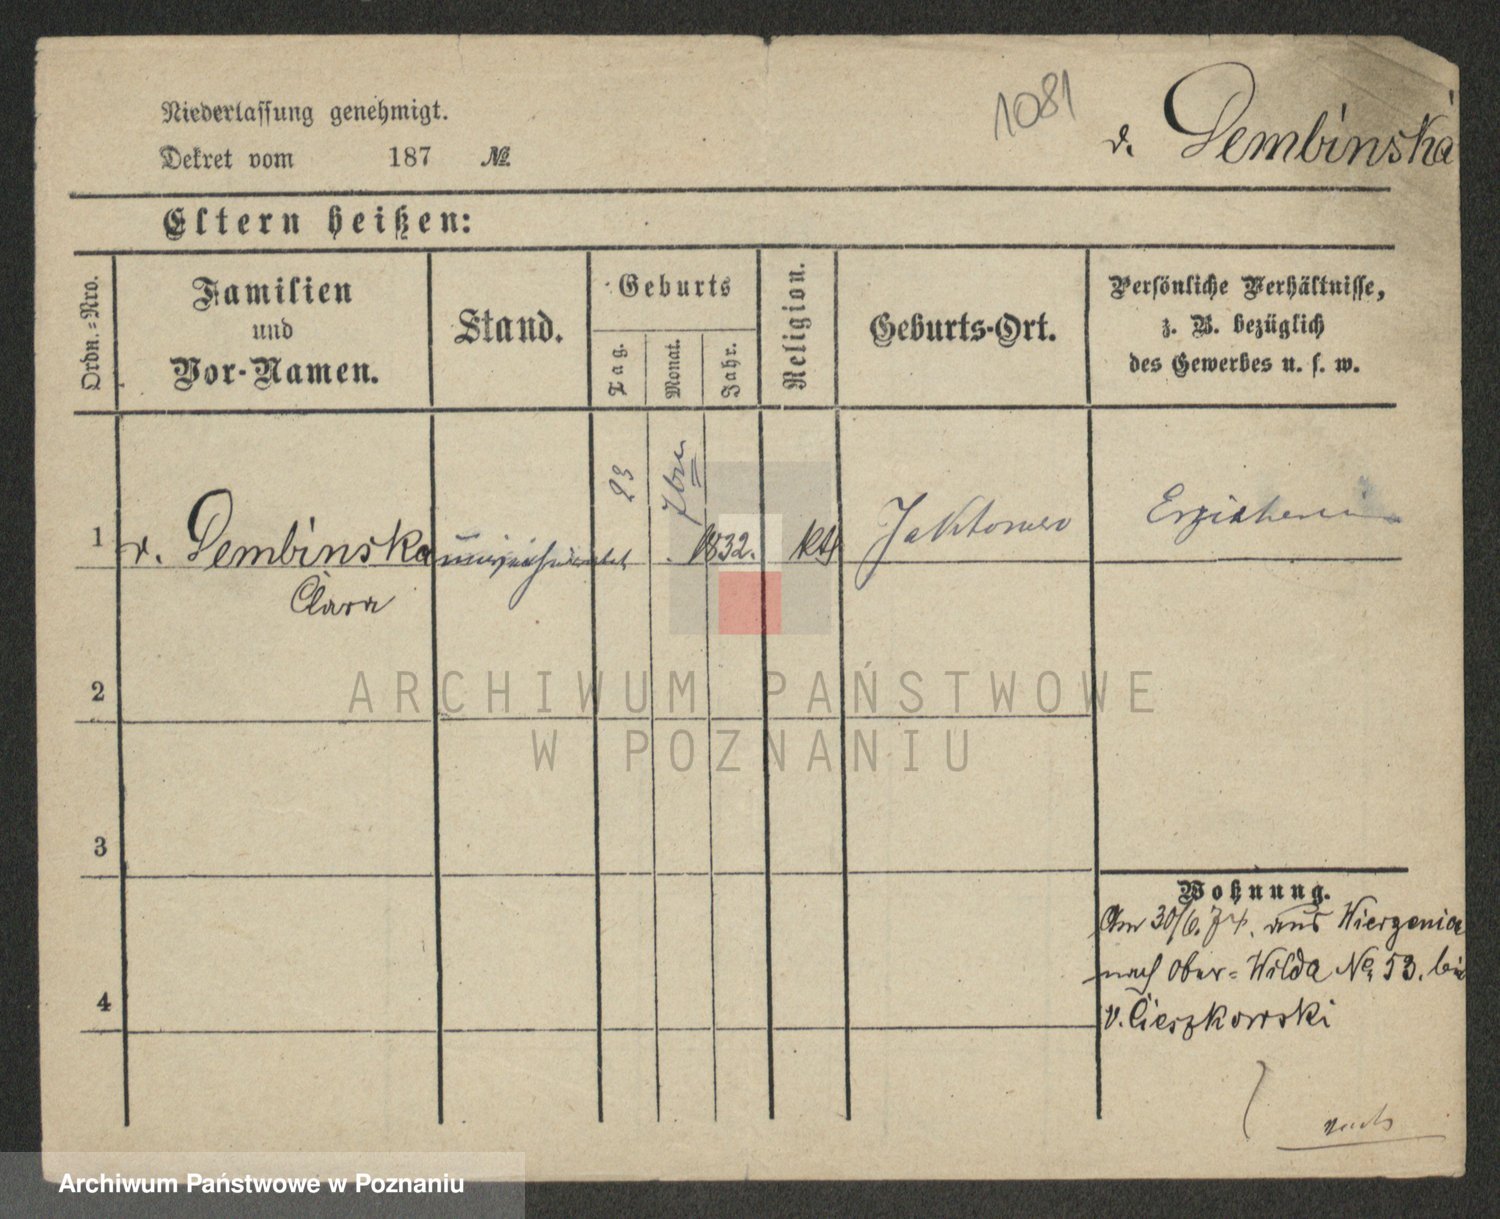 1081
v. Dembinska
Niederlassung genehmigt.
Dekret vom 187 №
Eltern heißen:
Ordn.=Nro.
Familien
und
Vor-Namen.
Stand.
Geburts
Tag.
Monat.
Jahr.
Religion.
Geburts-Ort.
Persönliche Verhältnisse,
z. B. bezüglich
des Gewerbes u. s. w.
1 v. Dembinska unverheirathet 23 7bre 1832. kth Jaktorowo Erzieherin
Clara
2
3
4
Wohnung.
Am 30/6. 74. aus Wierzenica
nach Ober=Wilda No 53. bei
v. Cieszkowski
ARCHIWUM PAŃSTWOWE
W POZNANIU
Archiwum Państwowe w Poznaniu